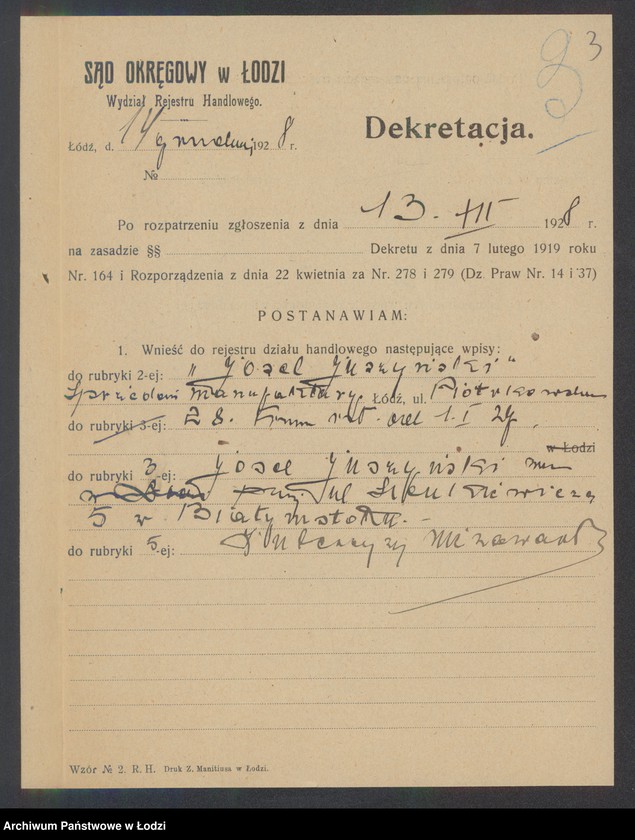 3
SĄD OKRĘGOWY w ŁODZI
Wydział Rejestru Handlowego.
Dekretacja.
Łódź, d. 14 grudnia 1928 r.
№
Po rozpatrzeniu zgłoszenia z dnia 13. XII 1928 r.
na zasadzie §§ Dekretu z dnia 7 lutego 1919 roku
Nr. 164 i Rozporządzenia z dnia 22 kwietnia za Nr. 278 i 279 (Dz. Praw Nr. 14 i 37)
POSTANAWIAM:
1. Wnieść do rejestru działu handlowego następujące wpisy:
do rubryki 2-ej: "Josel Juszyński"
Sprzedaż manufaktury. Łódź, ul. Piotrkowska
do rubryki 3-ej: 28. Firma istn. od 1.I 27.
w Łodzi
do rubryki 3-ej: Josel Juszyński zam
przy ul Sienkiewicza
5 w Białymstoku.
do rubryki 5-ej:
Wzór № 2. R. H. Druk Z. Manitiusa w Łodzi.
Archiwum Państwowe w Łodzi